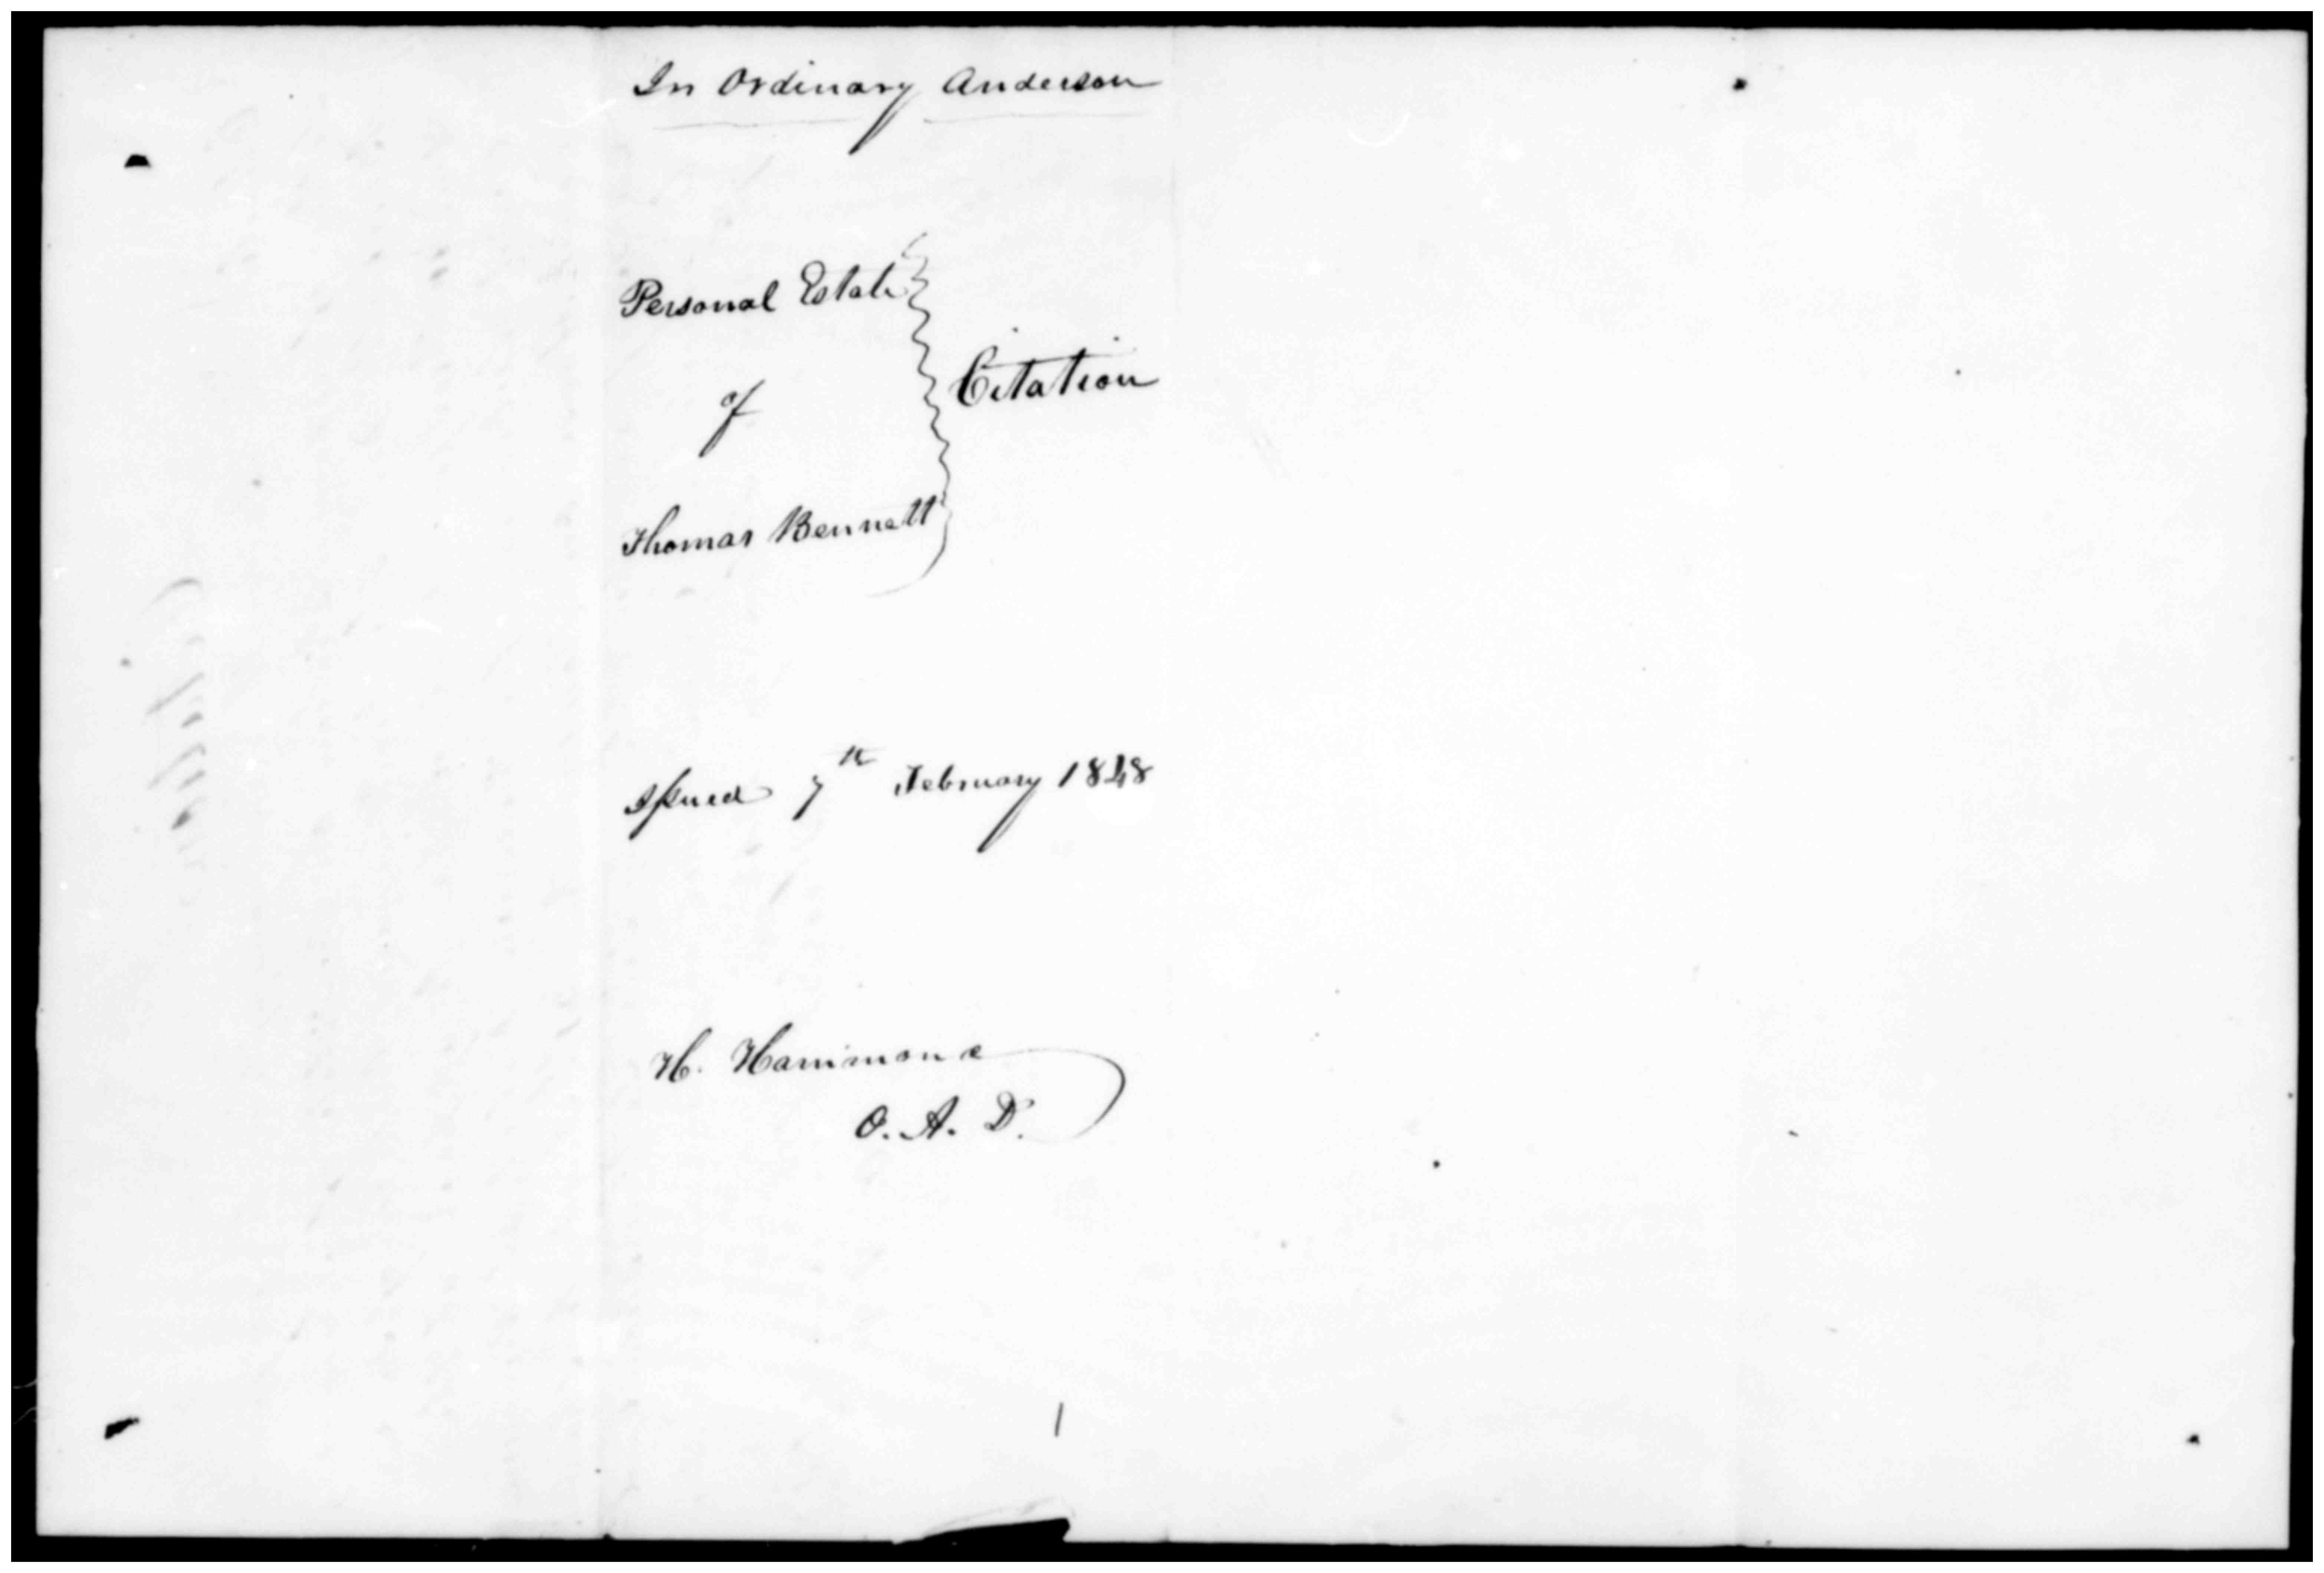 In Ordinary Anderson
Personal Estate
of
Citation
Thomas Bennett
Issued 7th February 1848
H. Hammond
O. A. D.
1